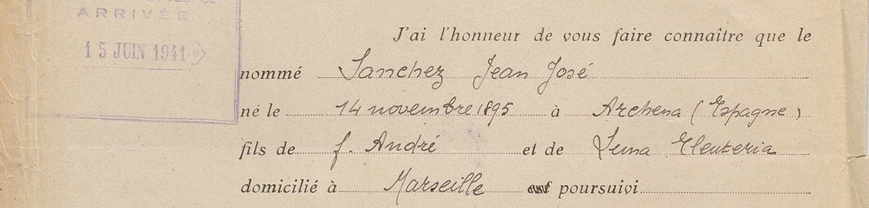 ARRIVÉE
15 JUIN 1941
J'ai l'honneur de vous faire connaître que le
nommé Sanchez Jean José
né le 14 novembre 1895 à Archena (Espagne)
fils de f. André et de Lema Eleuteria
domicilié à Marseille est poursuivi